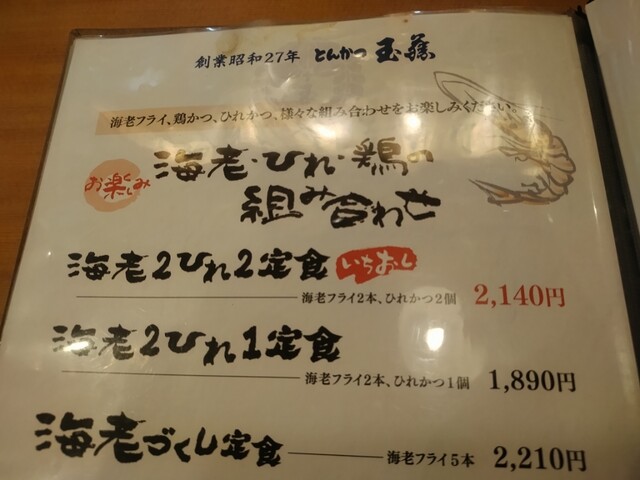 創業昭和27年 とんかつ 玉藤
海老フライ、鶏かつ、ひれかつ、様々な組み合わせをお楽しみください。
お楽しみ
海老・ひれ・鶏の
組み合わせ
海老2ひれ2定食 いちおし
海老フライ2本、ひれかつ2個 2,140円
海老2ひれ1定食
海老フライ2本、ひれかつ1個 1,890円
海老づくし定食 海老フライ5本 2,210円